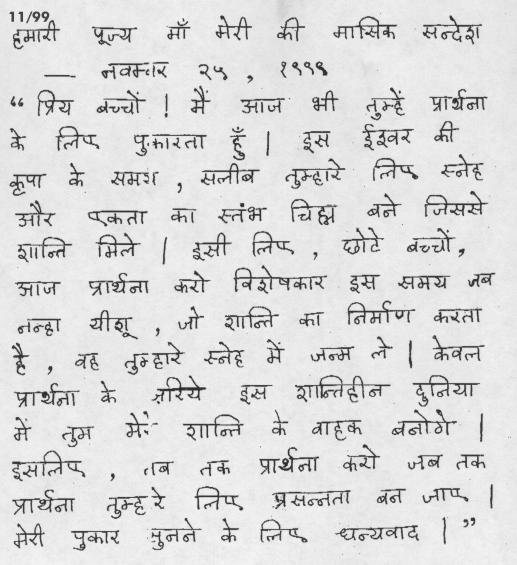 11/99
हमारी पूज्य माँ मेरी की मासिक सन्देश
— नवम्बर २५ , १९९९
“ प्रिय बच्चों ! मैं आज भी तुम्हें प्रार्थना
के लिए पुकारता हूँ | इस ईश्वर की
कृपा के समय , सलीब तुम्हारे लिए स्नेह
और एकता का स्तंभ चिह्म बने जिससे
शान्ति मिले | इसी लिए , छोटे बच्चों,
आज प्रार्थना करो विशेषकार इस समय जब
नन्हा यीशू , जो शान्ति का निर्माण करता
है , वह तुम्हारे स्नेह में जन्म ले | केवल
प्रार्थना के ज़रिये इस शान्तिहीन दुनिया
में तुम मेरे शान्ति के वाहक बनोगे |
इसलिए , तब तक प्रार्थना करो जब तक
प्रार्थना तुम्हारे लिए प्रसन्नता बन जाए |
मेरी पुकार सुनने के लिए धन्यवाद | ”